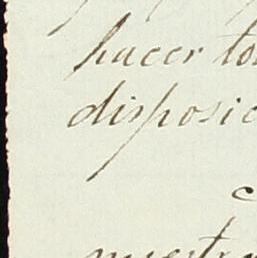 hacer to
disposic
c
nuestra